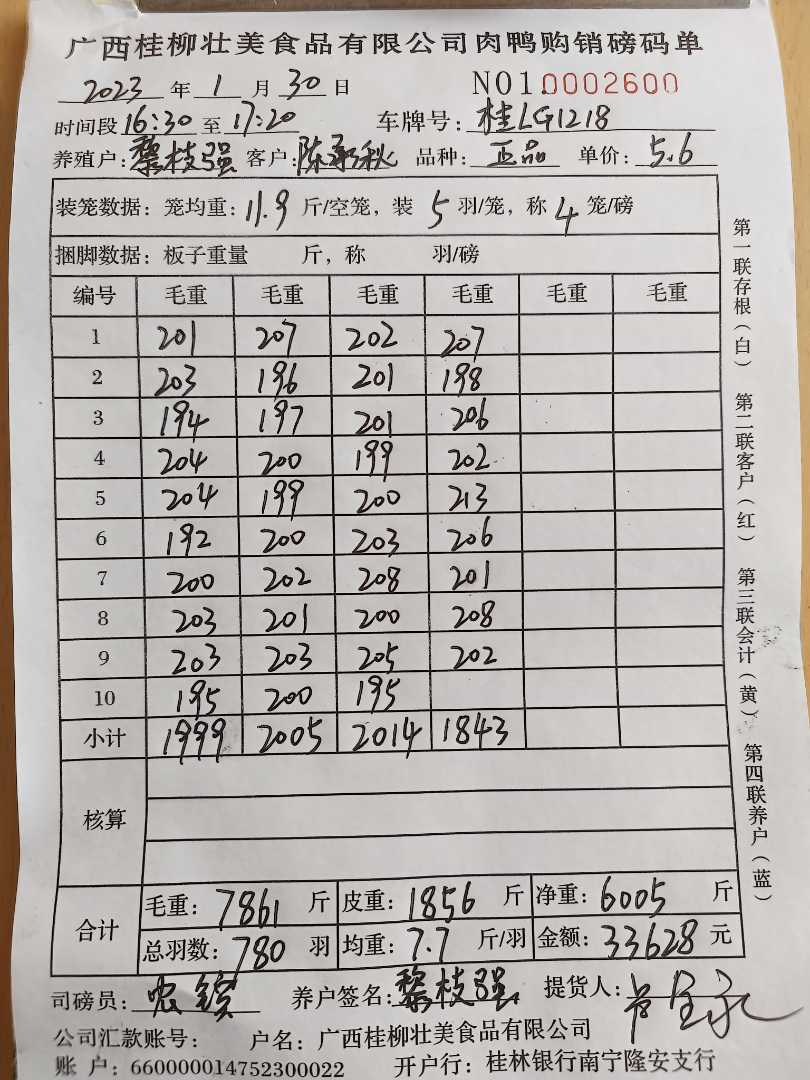 广西桂柳壮美食品有限公司肉鸭购销磅码单
2023 年 1 月 30 日 NO1.0002600
时间段 16:30 至 17:20 车牌号: 桂LG1218
养殖户: 黎枝强 客户: 陈承秋 品种: 正品 单价: 5.6
装笼数据: 笼均重: 11.9 斤/空笼, 装 5 羽/笼, 称 4 笼/磅
捆脚数据: 板子重量 斤, 称 羽/磅
编号 毛重 毛重 毛重 毛重 毛重 毛重
1 201 207 202 207
2 203 196 201 198
3 194 197 201 206
4 204 200 199 202
5 204 199 200 213
6 192 200 203 206
7 200 202 208 201
8 203 201 200 208
9 203 203 205 202
10 195 200 195
小计 1999 2005 2014 1843
核算
合计
毛重: 7861 斤 皮重: 1856 斤 净重: 6005 斤
总羽数: 780 羽 均重: 7.7 斤/羽 金额: 33628 元
司磅员: 农 养户签名: 黎枝强 提货人:
公司汇款账号: 户名: 广西桂柳壮美食品有限公司
账 户: 660000014752300022 开户行: 桂林银行南宁隆安支行
第一联存根(白) 第二联客户(红) 第三联会计(黄) 第四联养户(蓝)